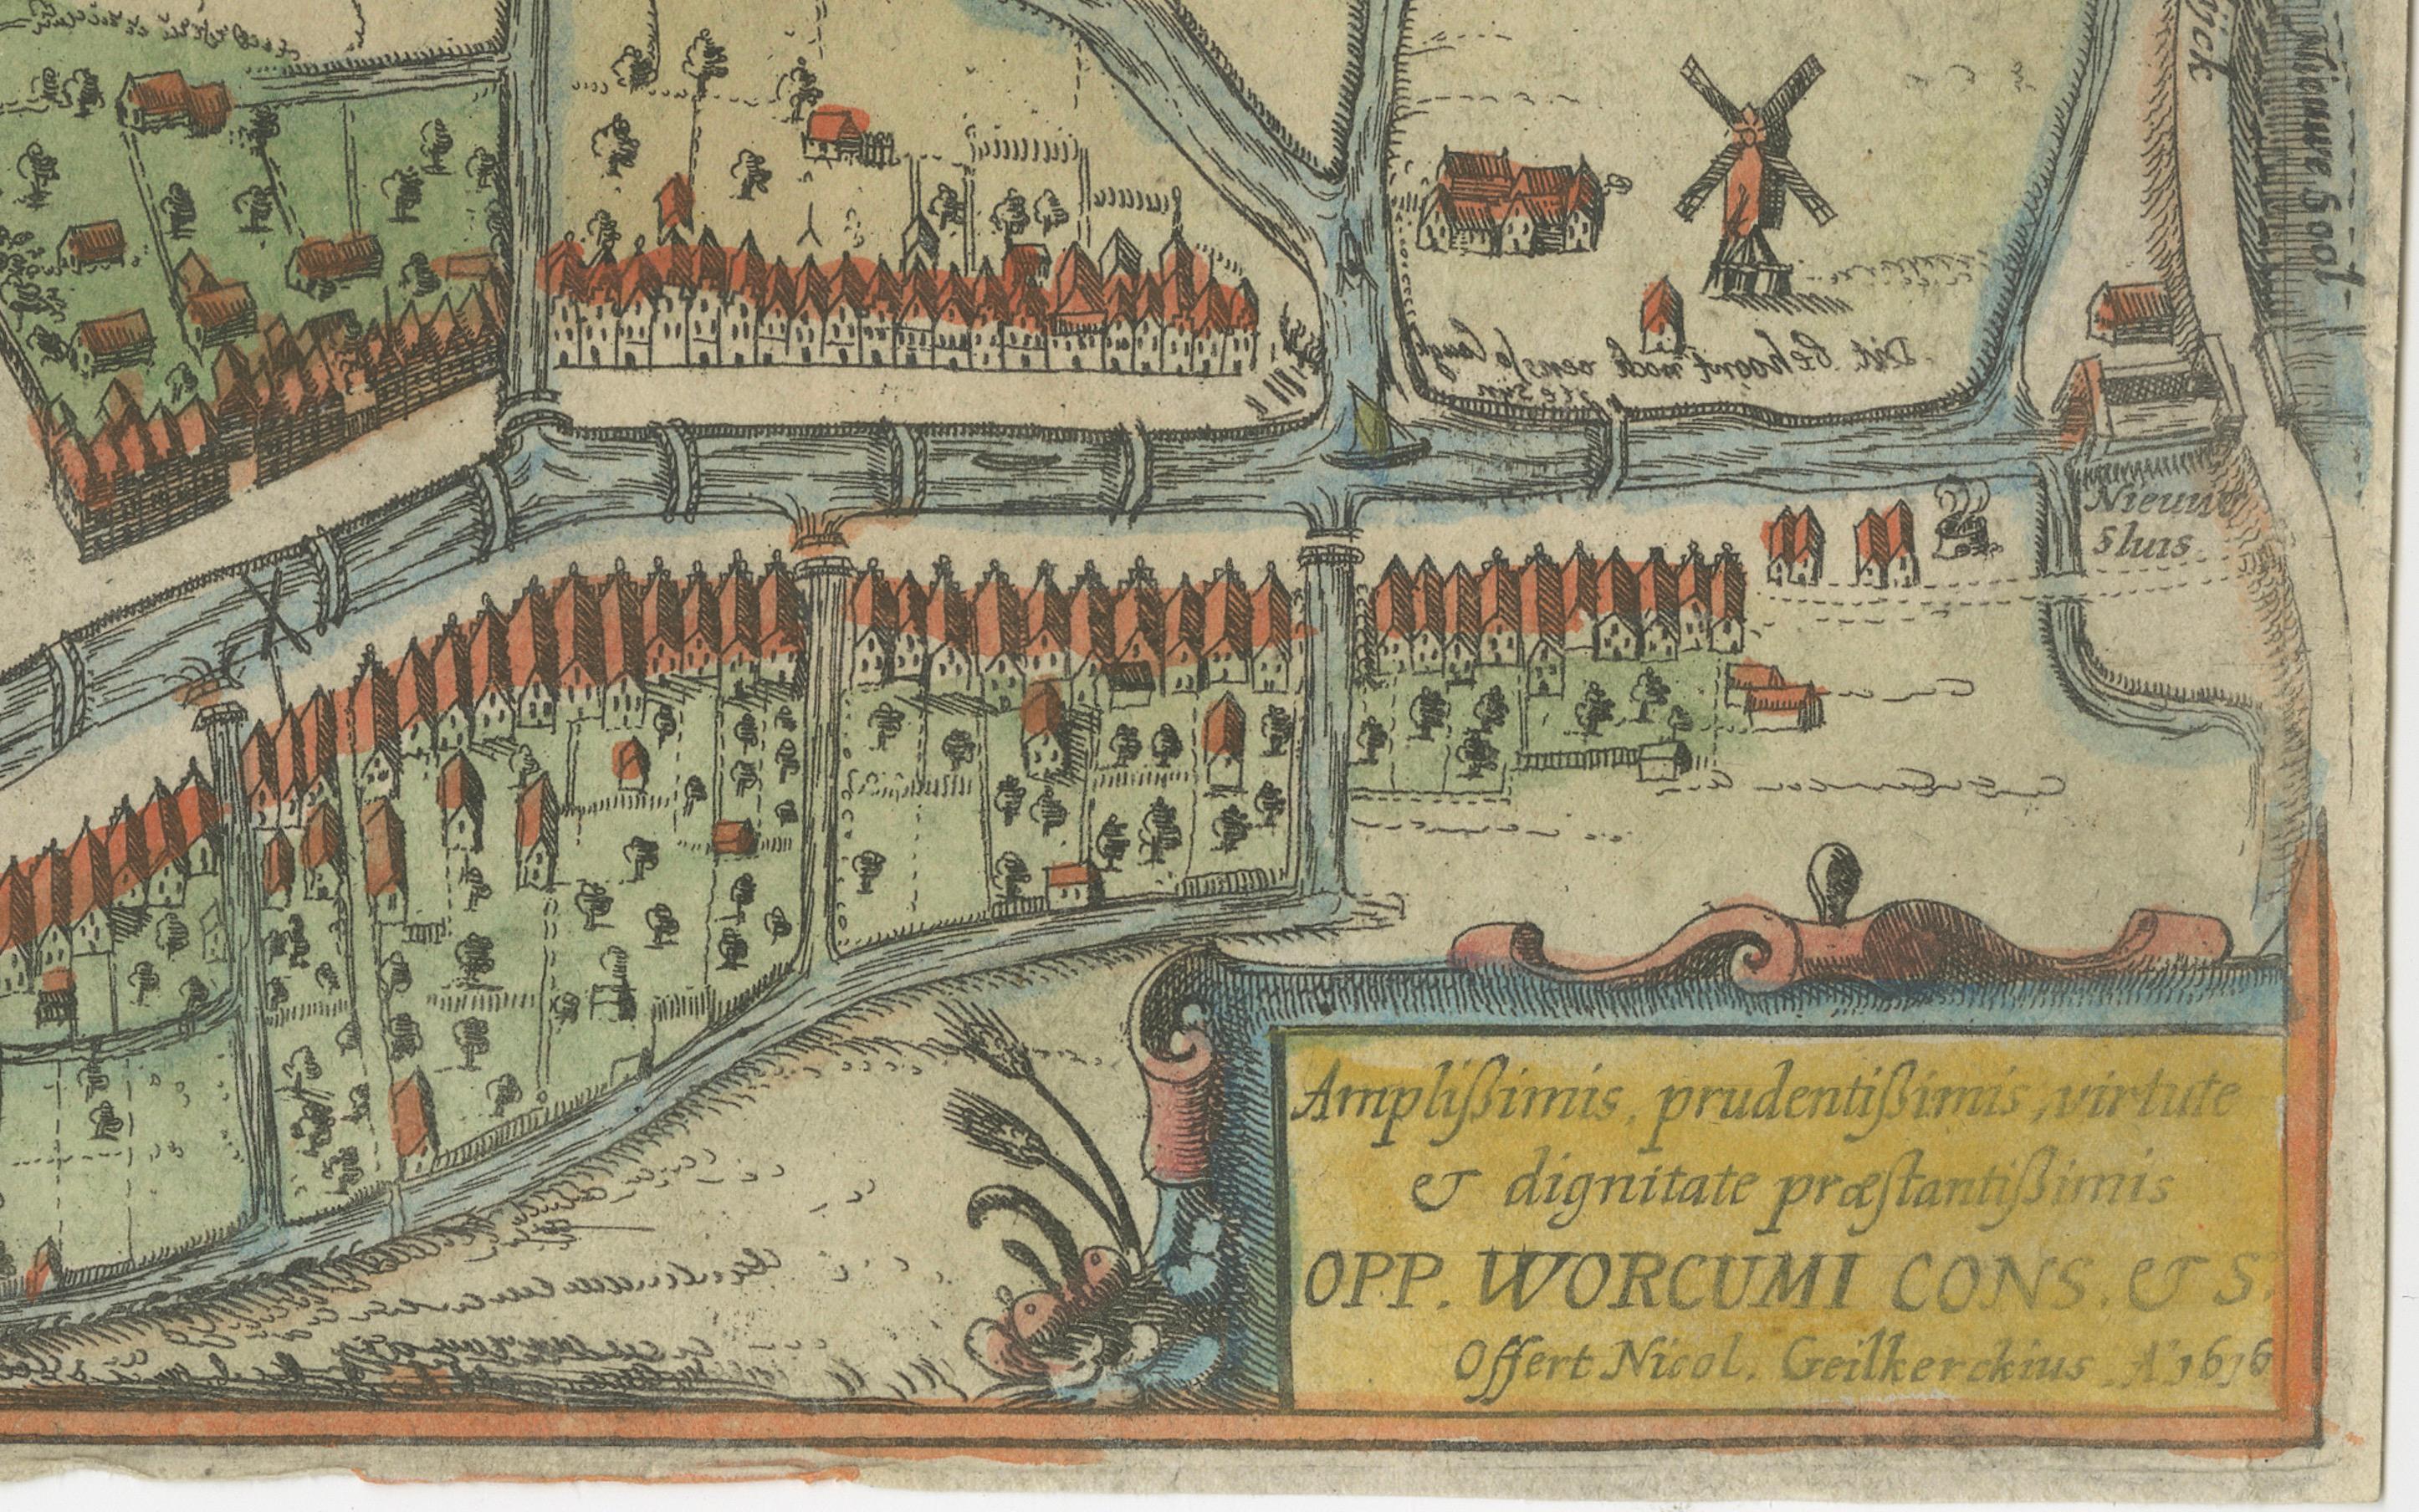 ÿck
Nieuwe Sool
Dit behoort noch eens so langh
te sijn
Nieuwe
Sluis.
Amplißimis, prudentißimis, virtute
& dignitate præstantißimis
OPP. WORCUMI CONS. & S.
Offert Nicol. Geilkerckius. A° 1616